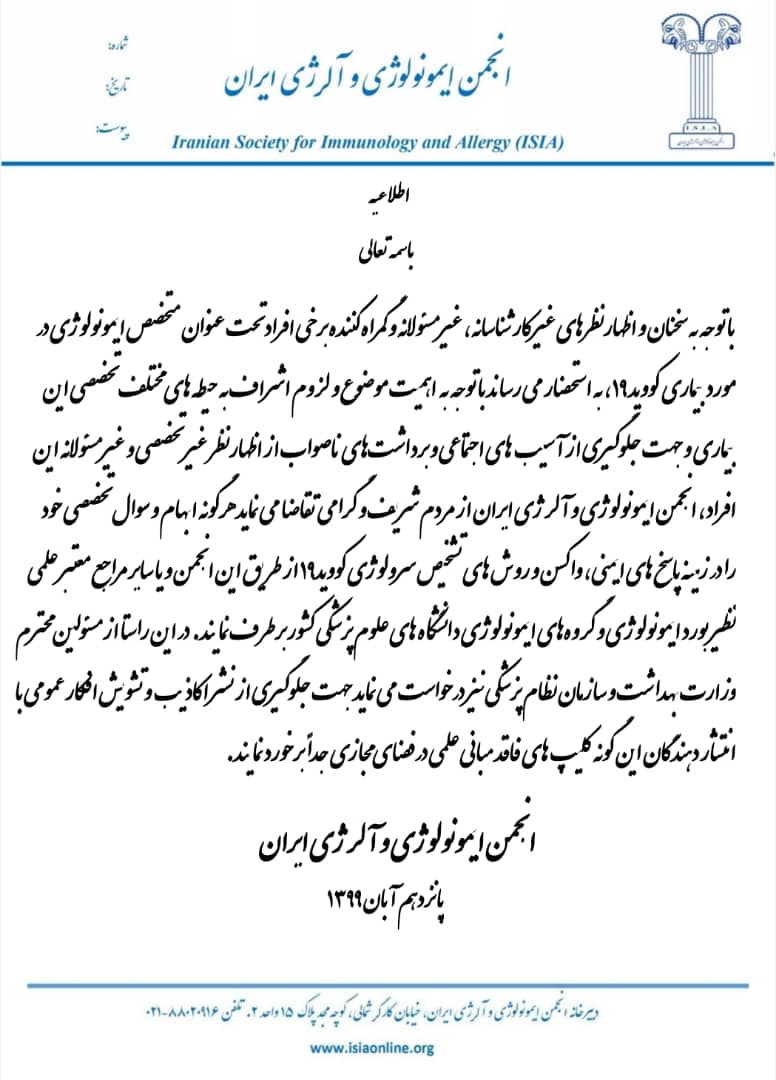 شماره:
تاریخ:
پیوست:
انجمن ایمونولوژی و آلرژی ایران
Iranian Society for Immunology and Allergy (ISIA)
I S I A
اطلاعیه
باسمه تعالی
باتوجه به سخنان و اظهارنظرهای غیرکارشناسانه، غیرمسئولانه و گمراه کننده برخی افراد تحت عنوان متخصص ایمونولوژی در
مورد بیماری کووید۱۹، به استحضار می رساند باتوجه به اهمیت موضوع و لزوم اشراف به حیطه های مختلف تخصصی این
بیماری و جهت جلوگیری از آسیب های اجتماعی و برداشت های ناصواب از اظهارنظر غیرتخصصی و غیرمسئولانه این
افراد، انجمن ایمونولوژی و آلرژی ایران از مردم شریف و گرامی تقاضا می نماید هرگونه ابهام و سوال تخصصی خود
را در زمینه پاسخ های ایمنی، واکسن و روش های تشخیص سرولوژی کووید۱۹ از طریق این انجمن و یا سایر مراجع معتبر علمی
نظیر بورد ایمونولوژی و گروه های ایمونولوژی دانشگاه های علوم پزشکی کشور برطرف نمایند. در این راستا از مسئولین محترم
وزارت بهداشت و سازمان نظام پزشکی نیز درخواست می نماید جهت جلوگیری از نشر اکاذیب و تشویش افکار عمومی با
انتشار دهندگان این گونه کلیپ های فاقد مبانی علمی در فضای مجازی جداً برخورد نمایند.
انجمن ایمونولوژی و آلرژی ایران
پانزدهم آبان ۱۳۹۹
دبیرخانه انجمن ایمونولوژی و آلرژی ایران، خیابان کارگر شمالی، کوچه مجد پلاک ۱۵ واحد ۲، تلفن ۸۸۰۲۰۹۱۶-۰۲۱
www.isiaonline.org